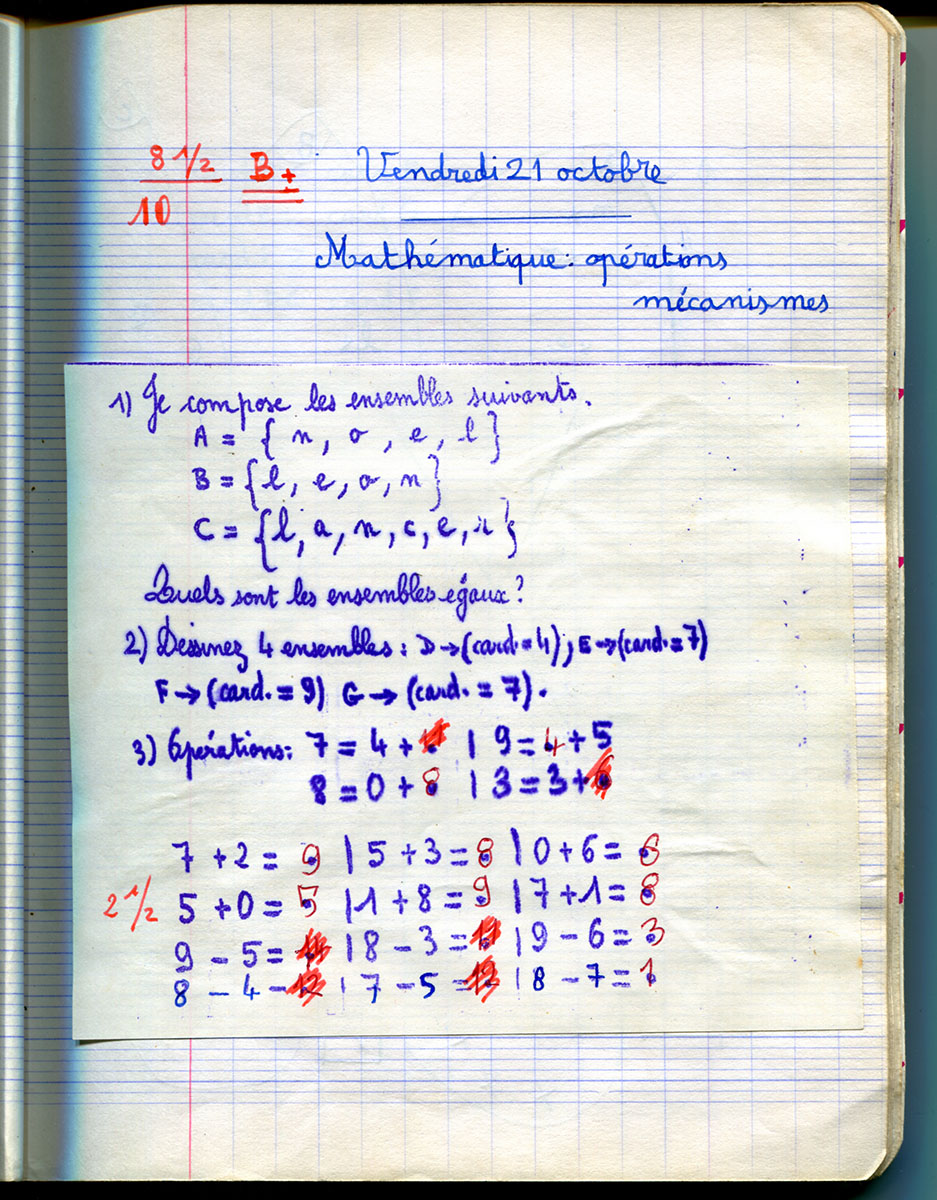 8 1/2
10
B+
Vendredi 21 octobre
Mathématique : opérations
mécanismes
1) Je compose les ensembles suivants.
A = { n, o, e, l }
B = { l, e, o, n }
C = { l, a, n, c, e, r }
Quels sont les ensembles égaux ?
2) Dessinez 4 ensembles : D → (card. = 4) ; E → (card. = 7)
F → (card. = 9) G → (card. = 7).
3) Opérations : 7 = 4 + | 9 = 4 + 5
8 = 0 + 8 | 3 = 3 +
7 + 2 = 9 | 5 + 3 = 8 | 0 + 6 = 6
2 1/2 5 + 0 = 5 | 1 + 8 = 9 | 7 + 1 = 8
9 - 5 = | 8 - 3 = | 9 - 6 = 3
8 - 4 - 12 | 7 - 5 = 12 | 8 - 7 = 1